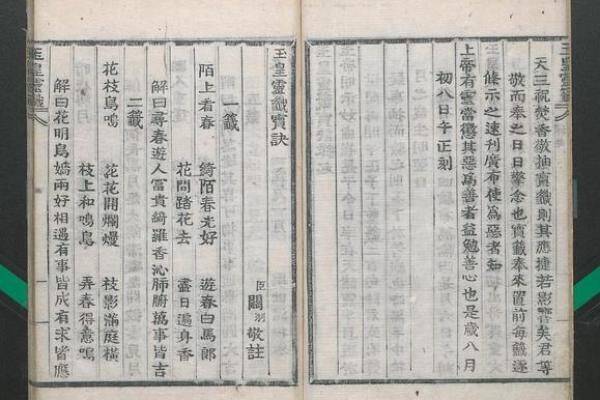 玉皇靈籤
天三祝焚香敬抽寶籤則其應捷若影響矣君等
敬而奉之日日警念也寶籤奉來置前每籤逐
條示之速刋廣布使爲惡者知
上帝有靈當懲其惡爲善者益勉善心也是歲八月
初八日午正刻
玉皇靈籤寶訣
臣關羽敬註
一籤
陌上看春 綺陌春光好 遊春白馬郎
花間踏花去 盡日遍身香
解曰尋春遊人富貴綺羅香沁肺腑萬事皆吉
二籤
花枝鳥鳴 花花開爛熳 枝影滿庭橫
枝上和鳴鳥 弄春得意鳴
解曰花明鳥嬌兩好相遇有事皆成有求皆應
玉皇靈籤